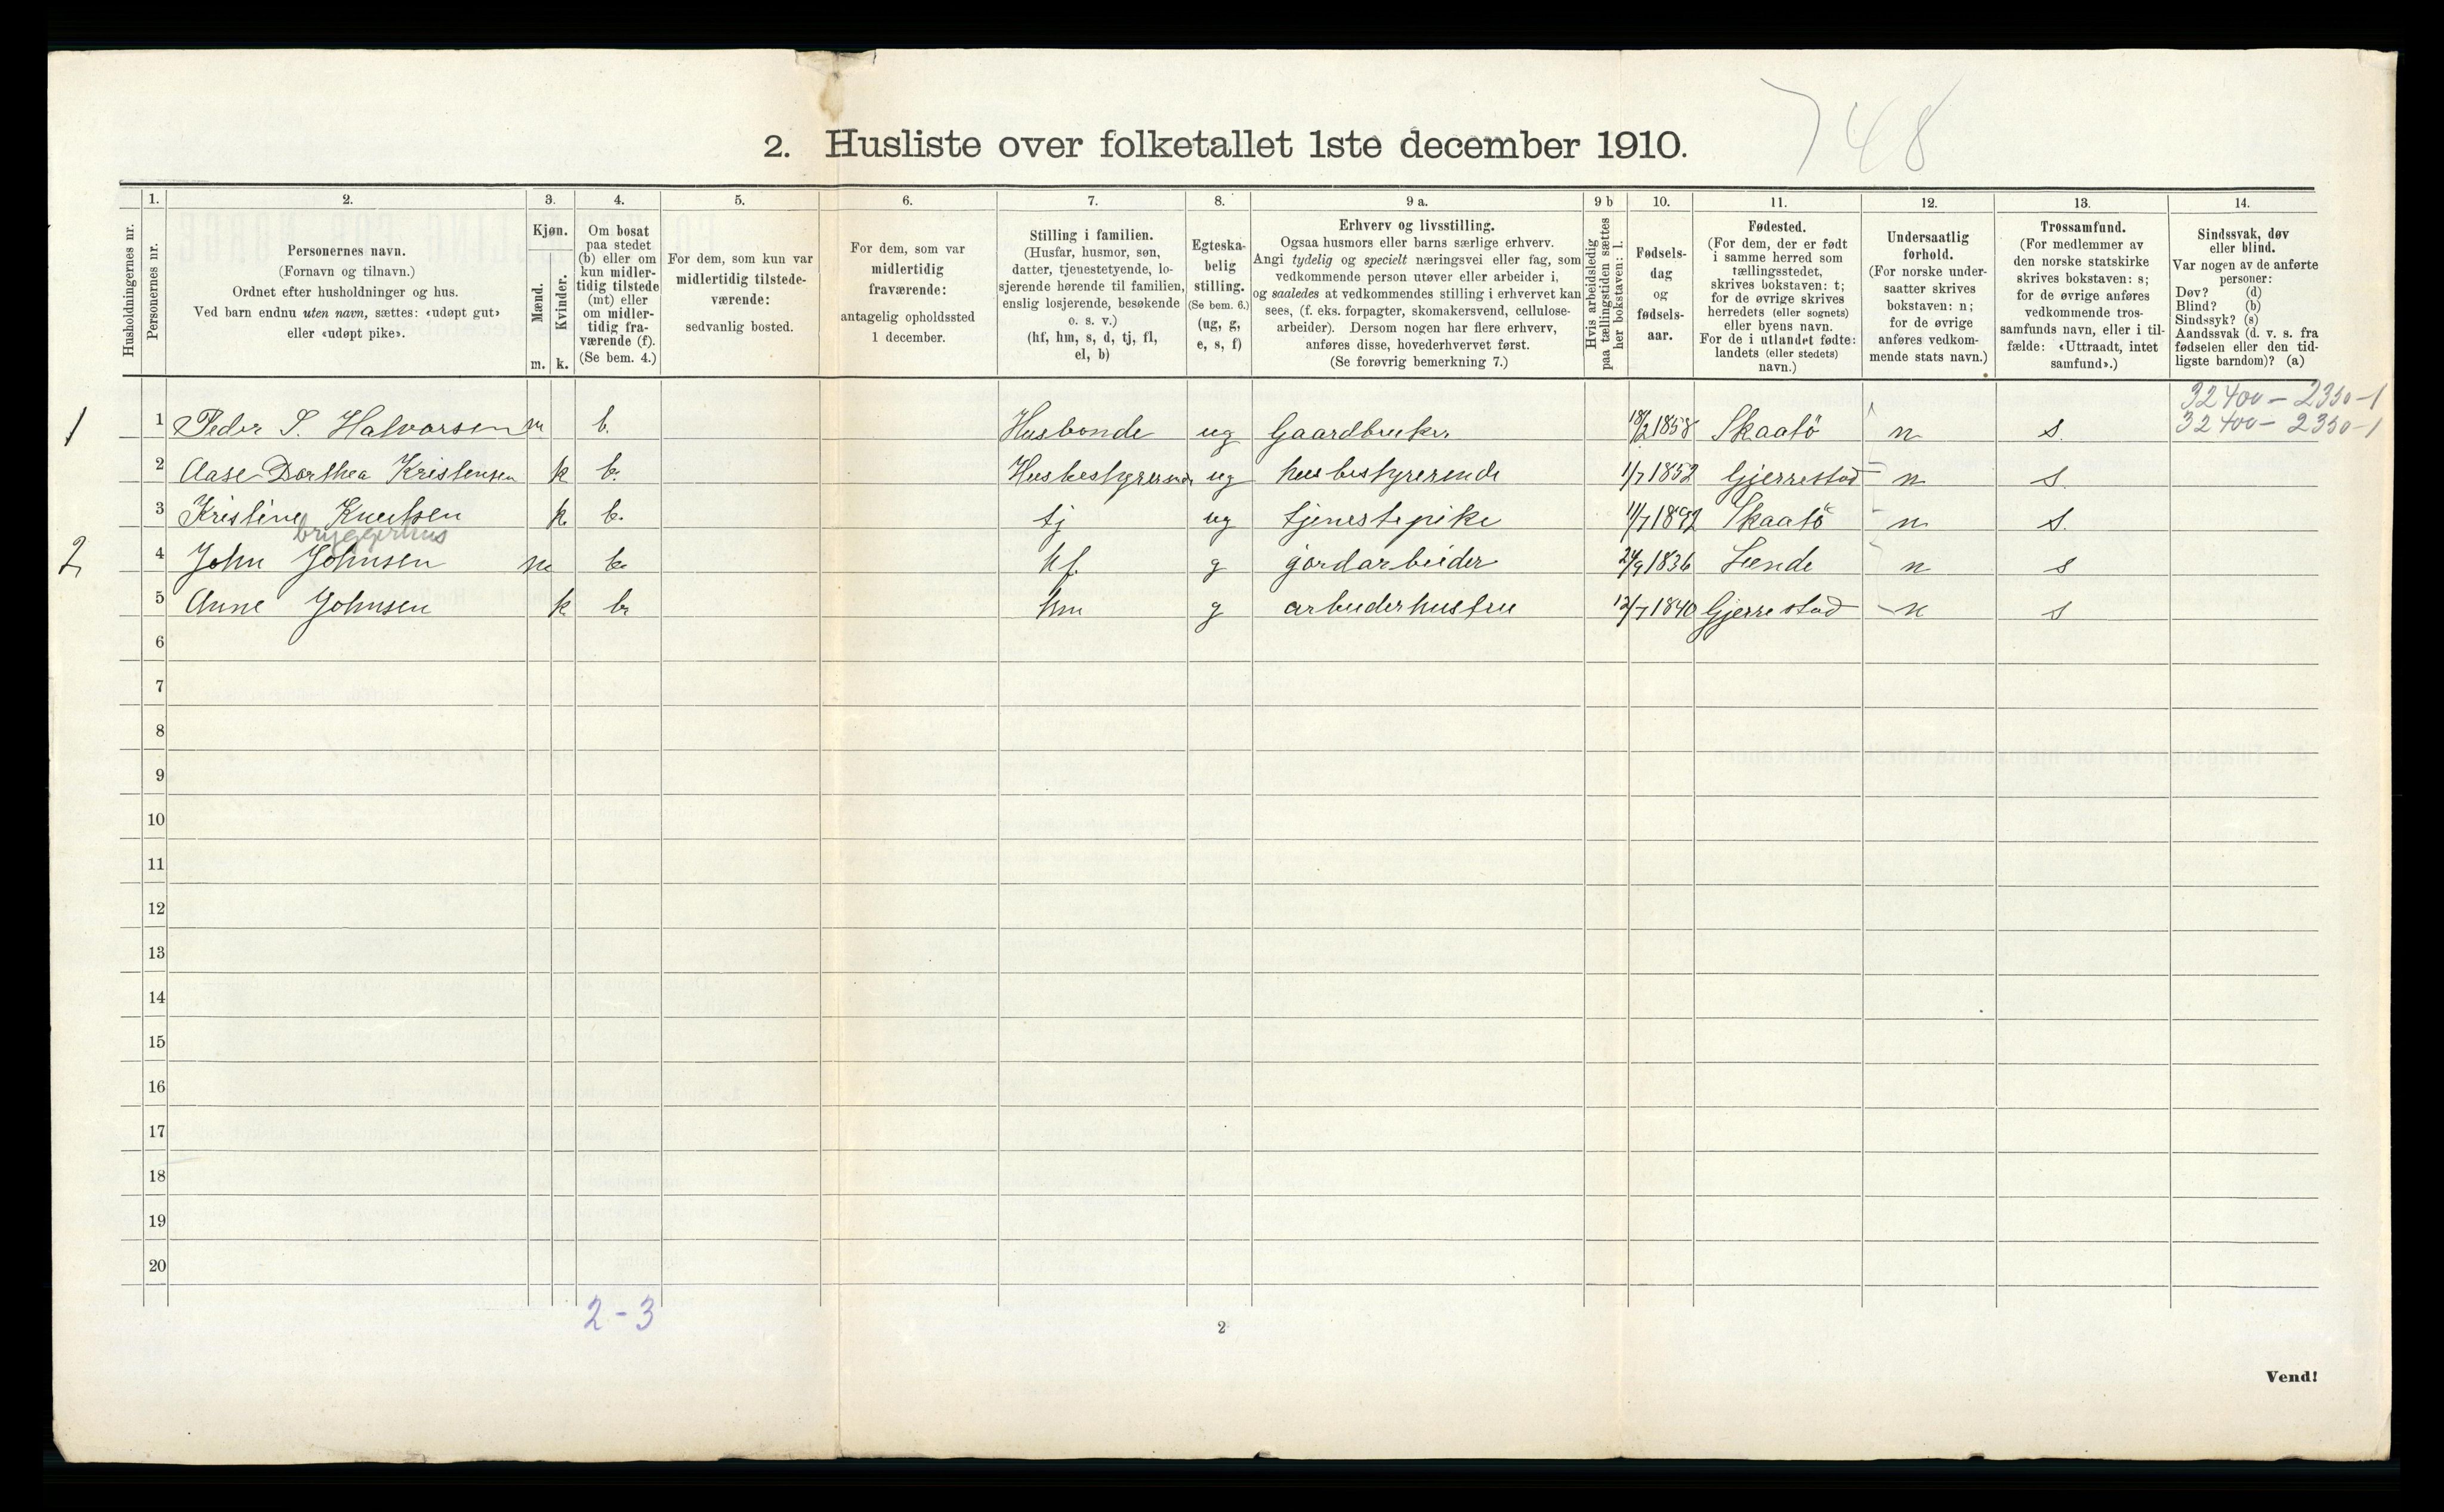 748
2. Husliste over folketallet 1ste december 1910.
Husholdningernes nr.
1.
Personernes nr.
2.
Personernes navn.
(Fornavn og tilnavn.)
Ordnet efter husholdninger og hus.
Ved barn endnu uten navn, sættes: «udøpt gut»
eller «udøpt pike».
3.
Kjøn.
Mænd.
Kvinder.
m. k.
4.
Om bosat
paa stedet
(b) eller om
kun midler-
tidig tilstede
(mt) eller
om midler-
tidig fra-
værende (f).
(Se bem. 4.)
5.
For dem, som kun var
midlertidig tilstede-
værende:
sedvanlig bosted.
6.
For dem, som var
midlertidig
fraværende:
antagelig opholdssted
1 december.
7.
Stilling i familien.
(Husfar, husmor, søn,
datter, tjenestetyende, lo-
sjerende hørende til familien,
enslig losjerende, besøkende
o. s. v.)
(hf, hm, s, d, tj, fl,
el, b)
8.
Egteska-
belig
stilling.
(Se bem. 6.)
(ug, g,
e, s, f)
9 a.
Erhverv og livsstilling.
Ogsaa husmors eller barns særlige erhverv.
Angi tydelig og specielt næringsvei eller fag, som
vedkommende person utøver eller arbeider i,
og saaledes at vedkommendes stilling i erhvervet kan
sees, (f. eks. forpagter, skomakersvend, cellulose-
arbeider). Dersom nogen har flere erhverv,
anføres disse, hovederhvervet først.
(Se forøvrig bemerkning 7.)
9 b
Hvis arbeidsledig
paa tællingstiden sættes
her bokstaven: l.
10.
Fødsels-
dag
og
fødsels-
aar.
11.
Fødested.
(For dem, der er født
i samme herred som
tællingsstedet,
skrives bokstaven: t;
for de øvrige skrives
herredets (eller sognets)
eller byens navn.
For de i utlandet fødte:
landets (eller stedets)
navn.)
12.
Undersaatlig
forhold.
(For norske under-
saatter skrives
bokstaven: n;
for de øvrige
anføres vedkom-
mende stats navn.)
13.
Trossamfund.
(For medlemmer av
den norske statskirke
skrives bokstaven: s;
for de øvrige anføres
vedkommende tros-
samfunds navn, eller i til-
fælde: «Uttraadt, intet
samfund».)
14.
Sindssvak, døv
eller blind.
Var nogen av de anførte
personer:
Døv? (d)
Blind? (b)
Sindssyk? (s)
Aandssvak (d. v. s. fra
fødselen eller den tid-
ligste barndom)? (a)
32400 - 2350-1
1 1 Peder S. Halvorsen m b. Husbonde ug Gaardbruker 18/2 1858 Skaatö n s. 32400 - 2350-1
2 Aase Dorthea Kristensen k b. Husbestyrerende ug husbestyrerende 1/7 1852 Gjerrestad n s.
3 Kristine Knutsen k. b. tj ug tjenestepike 11/7 1892 Skaatö n s.
bryggerhus
2 4 John Johnsen m b. hf. g jordarbeider 24/9 1836 Lunde n s
5 Anne Johnsen k b. hm g arbeiderhustru 12/7 1840 Gjerrestad n s
6
7
8
9
10
11
12
13
14
15
16
17
18
19
20
2-3
2
Vend!